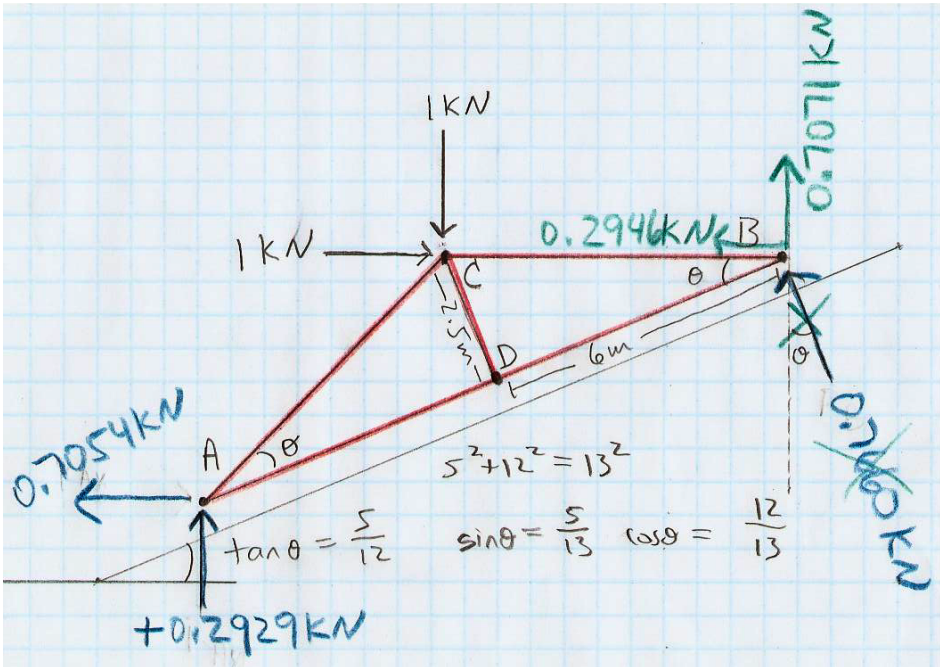 1KN
0.7071KN
1KN
0.2946KN
B
C
θ
2.5m
D
6m
θ
A
θ
0.7660KN
0.7054KN
5²+12²=13²
tanθ = 5/12
sinθ = 5/13
cosθ = 12/13
+0.2929KN